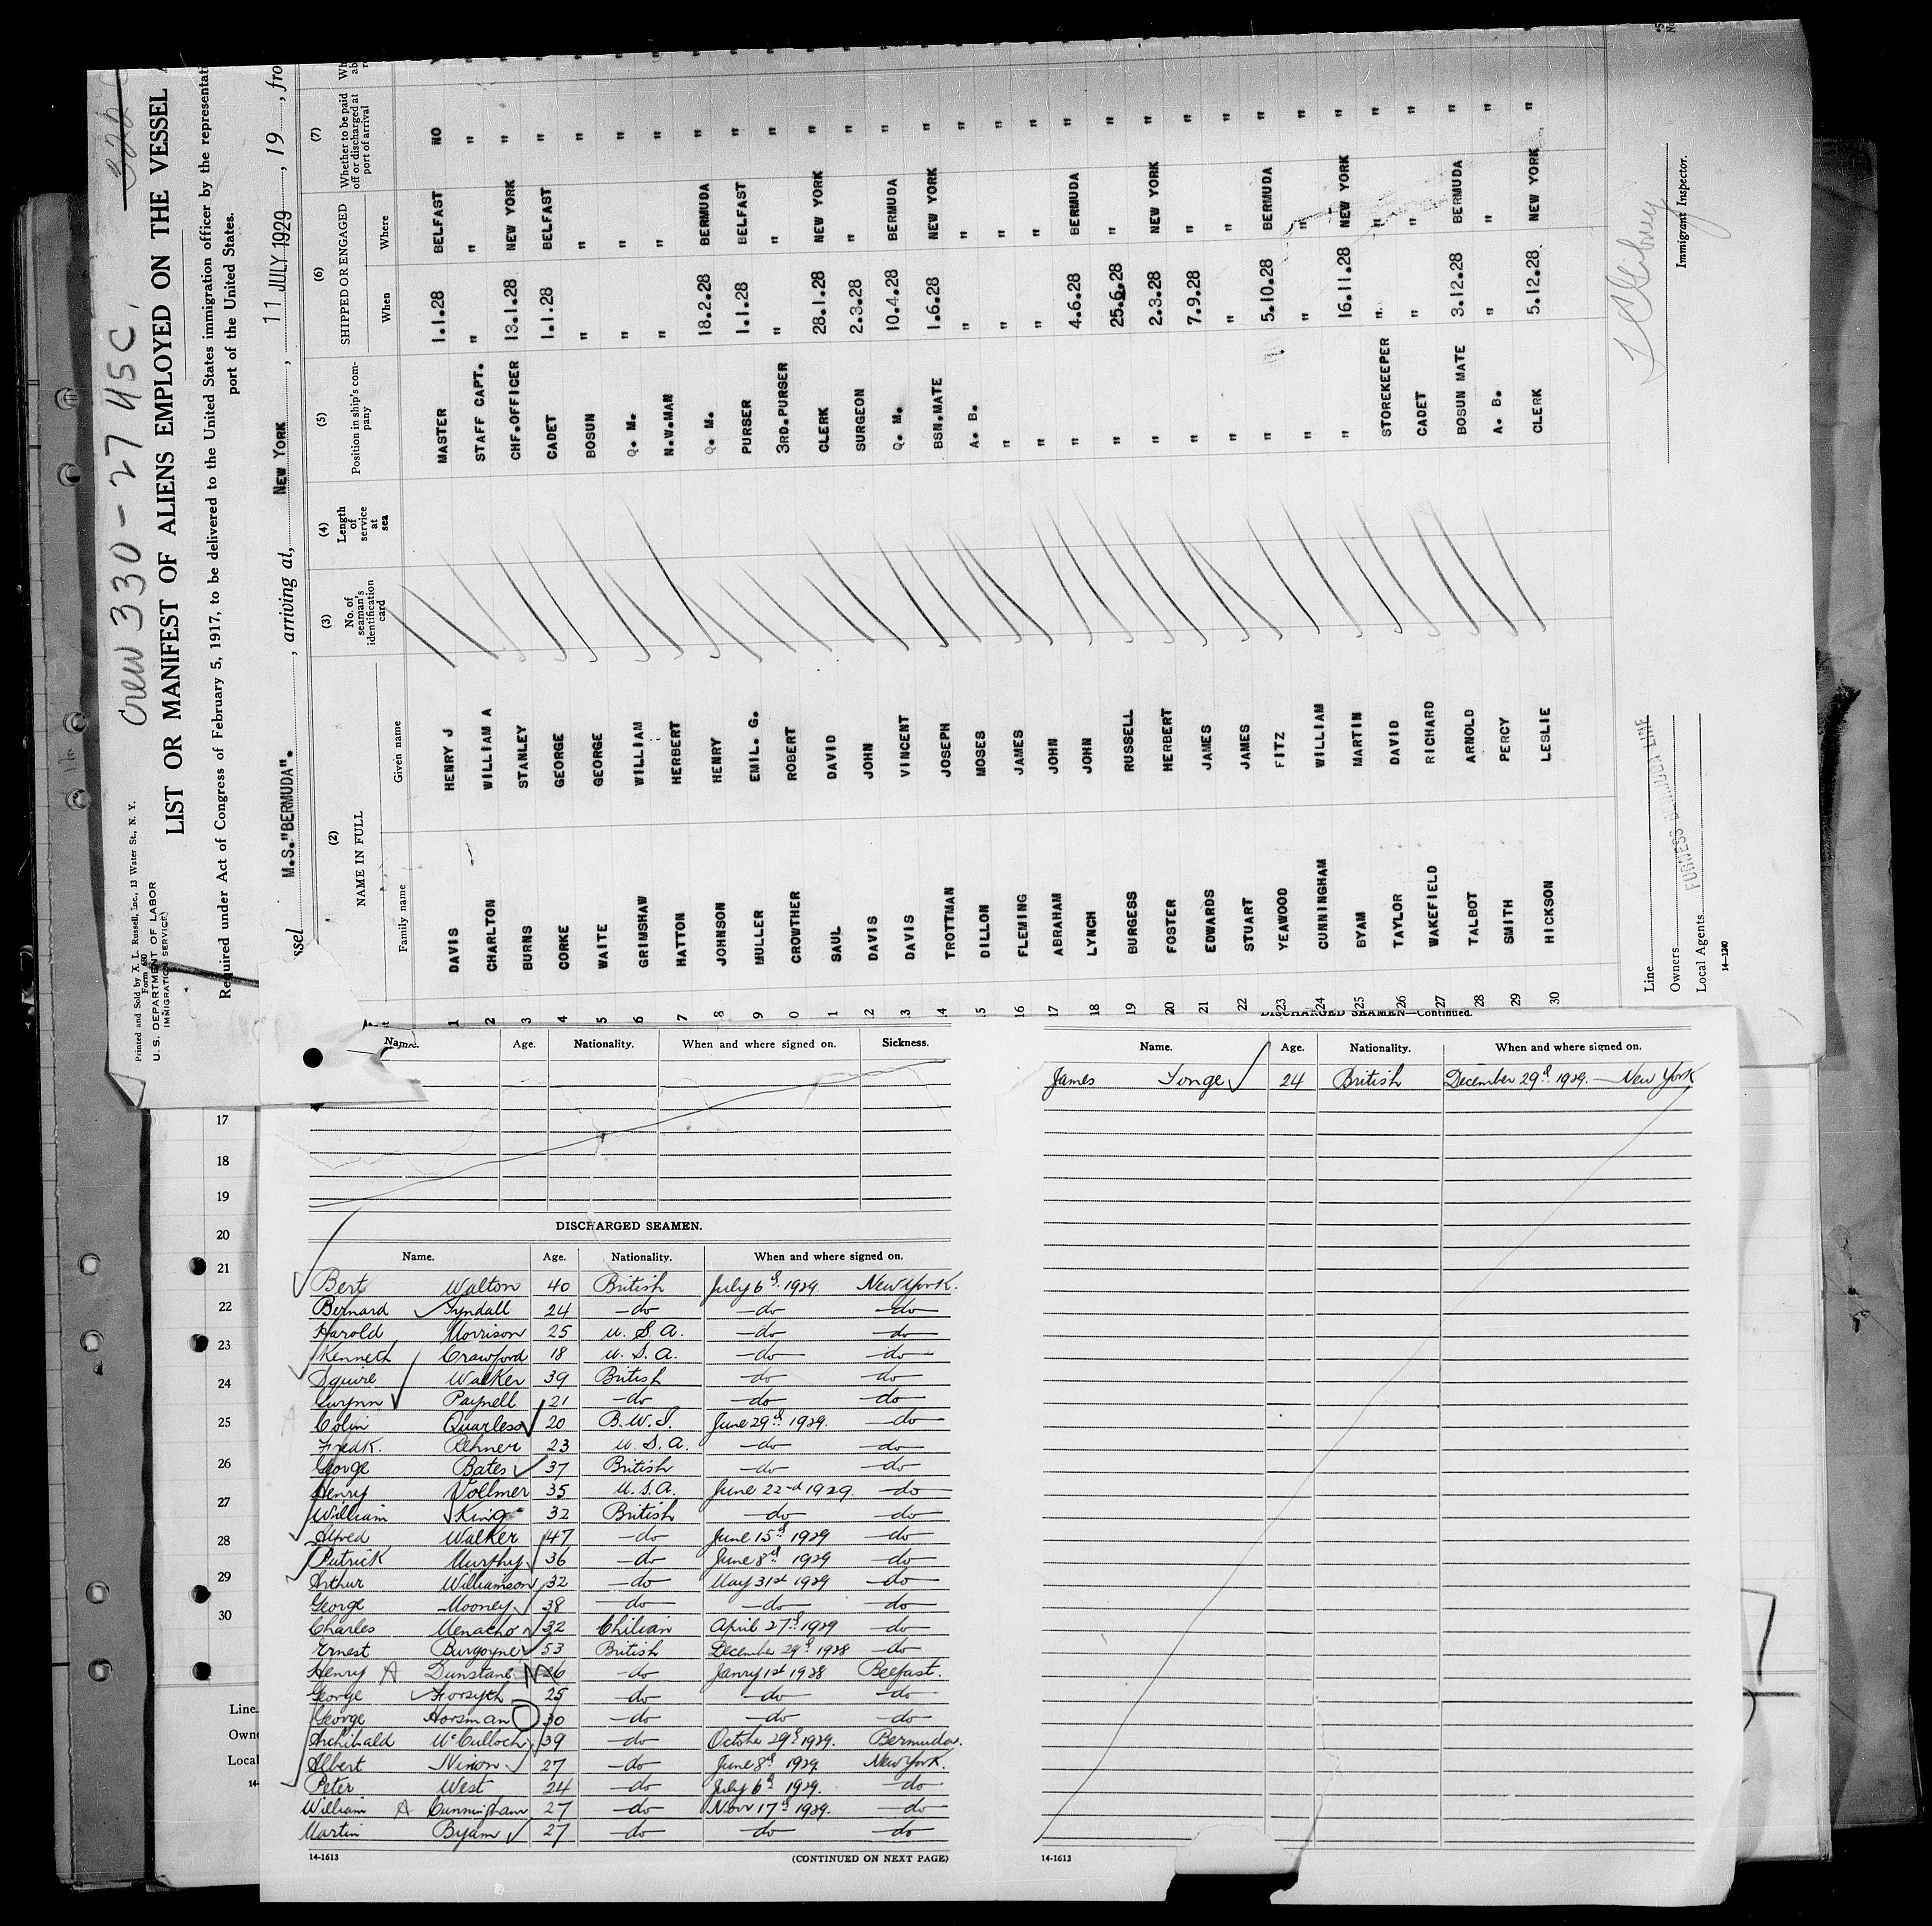 Crew 330-27 USC,
Printed and Sold by A. L. Russell, Inc., 13 Water St., N. Y.
Form 680
U. S. DEPARTMENT OF LABOR
IMMIGRATION SERVICE
LIST OR MANIFEST OF ALIENS EMPLOYED ON THE VESSEL
Required under Act of Congress of February 5, 1917, to be delivered to the United States immigration officer by the representati
port of the United States.
ssel M.S."BERMUDA". , arriving at, NEW YORK , 11 JULY 1929 , 19 , fro
(2) (3) (4) (5) (6) (7)
NAME IN FULL No. of seaman's identification card Length of service at sea Position in ship's com-pany SHIPPED OR ENGAGED Whether to be paid off or discharged at port of arrival
Family name Given name When Where
1 DAVIS HENRY J MASTER 1.1.28 BELFAST NO
2 CHARLTON WILLIAM A STAFF CAPT. " " "
3 BURNS STANLEY CHF.OFFICER 13.1.28 NEW YORK "
4 CORKE GEORGE CADET 1.1.28 BELFAST "
5 WAITE GEORGE BOSUN " " "
6 GRIMSHAW WILLIAM Q. M. " " "
7 HATTON HERBERT N.W.MAN " " "
8 JOHNSON HENRY Q. M. 18.2.28 BERMUDA "
9 MULLER EMIL. G. PURSER 1.1.28 BELFAST "
0 CROWTHER ROBERT 3RD.PURSER " " "
1 SAUL DAVID CLERK 28.1.28 NEW YORK "
2 DAVIS JOHN SURGEON 2.3.28 " "
3 DAVIS VINCENT Q. M. 10.4.28 BERMUDA "
14 TROTTMAN JOSEPH BSN.MATE 1.6.28 NEW YORK "
15 DILLON MOSES A. B. " " "
16 FLEMING JAMES " " " "
17 ABRAHAM JOHN " " " "
18 LYNCH JOHN " 4.6.28 BERMUDA "
19 BURGESS RUSSELL " 25.6.28 " "
20 FOSTER HERBERT " 2.3.28 NEW YORK "
21 EDWARDS JAMES " 7.9.28 " "
22 STUART JAMES " " " "
23 YEAWOOD FITZ " 5.10.28 BERMUDA "
24 CUNNINGHAM WILLIAM " " " "
25 BYAM MARTIN " 16.11.28 NEW YORK "
26 TAYLOR DAVID STOREKEEPER " " "
27 WAKEFIELD RICHARD CADET " " "
28 TALBOT ARNOLD BOSUN MATE 3.12.28 BERMUDA "
29 SMITH PERCY A. B. " " "
30 HICKSON LESLIE CLERK 5.12.28 NEW YORK "
Line
Owners FURNESS BERMUDA LINE
Local Agents
14-1240
Immigrant Inspector.
Name. Age. Nationality. When and where signed on. Sickness.
DISCHARGED SEAMEN.
Name. Age. Nationality. When and where signed on.
Bert Walton 40 British July 6th 1929. New York.
Bernard Tyndall 24 -do- -do- -do-
Harold Morrison 25 U. S. A. -do- -do-
Kenneth Crawford 18 U. S. A. -do- -do-
Squire Walker 39 British -do- -do-
Gwynn Paynell 21 -do- -do- -do-
Colin Quarless 20 B. W. I. June 29th 1929. -do-
Fredk. Rehner 23 U. S. A. -do- -do-
George Bates 37 British -do- -do-
Henry Vollmer 35 U. S. A. June 22nd 1929. -do-
William King 32 British -do- -do-
Alfred Walker 47 -do- June 15th 1929 -do-
Patrick Murphy 36 -do- June 8th 1929 -do-
Arthur Williamson 32 -do- May 31st 1929 -do-
George Mooney 38 -do- -do- -do-
Charles Menacho 32 Chilian April 27th 1929 -do-
Ernest Burgoyne 53 British December 29th 1928 -do-
Henry A Dunstane 26 -do- Janry 1st 1928 Belfast.
George Forsyth 25 -do- -do- -do-
George Horsman 30 -do- -do- -do-
Archibald McCulloch 39 -do- October 29th 1929. Bermuda.
Albert Nixon 27 -do- June 8th 1929 New York.
Peter West 24 -do- July 6th 1929. -do-
William A Cunningham 27 -do- Novr 17th 1929. -do-
Martin Byam 27 -do- -do- -do-
14-1613 (CONTINUED ON NEXT PAGE)
DISCHARGED SEAMEN—Continued.
Name. Age. Nationality. When and where signed on.
James Tonge 24 British December 29th 1929. — New York
14-1613
17
18
19
20
21
22
23
24
25
26
27
28
29
30
Line
Owne
Local
14-